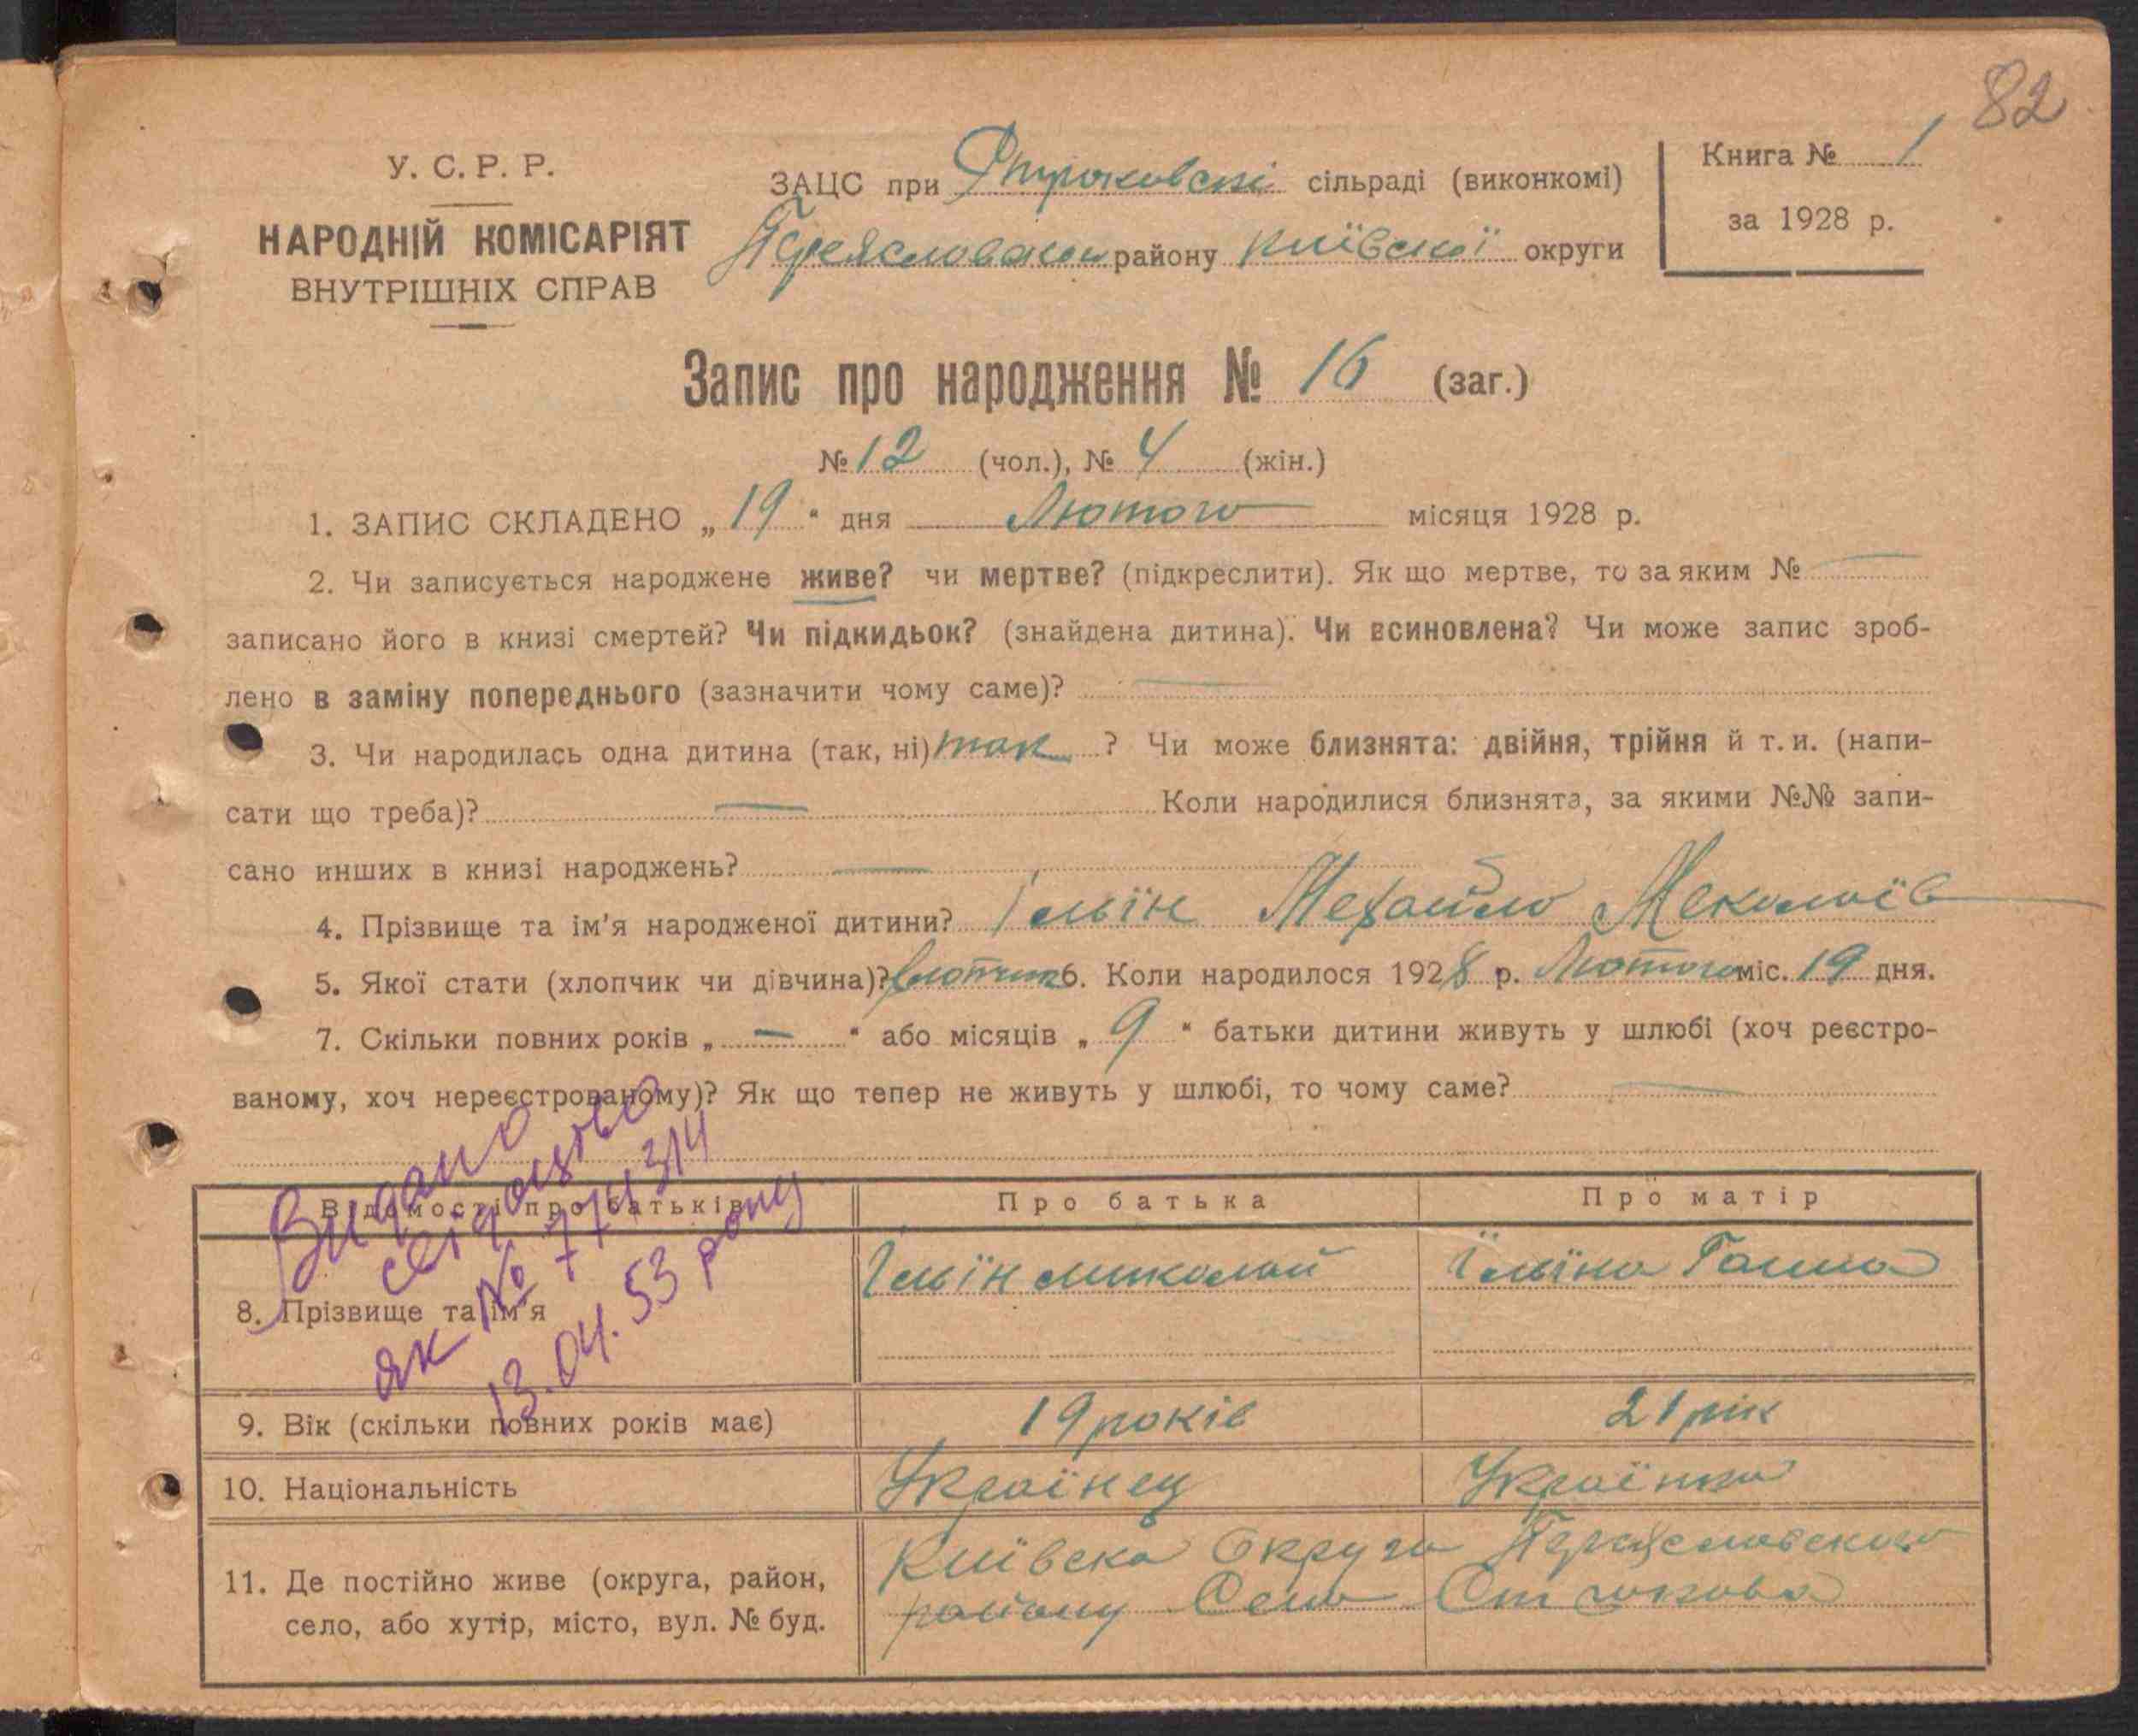 82
У. С. Р. Р.
НАРОДНІЙ КОМІСАРІЯТ
ВНУТРІШНІХ СПРАВ
ЗАЦС при сільраді (виконкомі)
району Київскої округи
Книга № 1
за 1928 р.
Запис про народження № 16 (заг.)
№ 12 (чол.), № 4 (жін.)
1. ЗАПИС СКЛАДЕНО „ 19 “ дня Лютого місяця 1928 р.
2. Чи записується народжене живе? чи мертве? (підкреслити). Як що мертве, то за яким № —
записано його в книзі смертей? Чи підкидьок? (знайдена дитина). Чи всиновлена? Чи може запис зроб-
лено в заміну попереднього (зазначити чому саме)? —
3. Чи народилась одна дитина (так, ні) так ? Чи може близнята: двійня, трійня й т. и. (напи-
сати що треба)? — Коли народилися близнята, за якими №№ запи-
сано инших в книзі народжень? —
4. Прізвище та ім'я народженої дитини? Ільїн Мехайло Меколаїв
5. Якої стати (хлопчик чи дівчина)? хлопчик 6. Коли народилося 1928 р. Лютого міс. 19 дня.
7. Скільки повних років „ — “ або місяців „ 9 “ батьки дитини живуть у шлюбі (хоч реєстро-
ваному, хоч нереєстрованому)? Як що тепер не живуть у шлюбі, то чому саме? —
Видано
свідоцтво
як № 774314
13.04.53 року
Відомості про батьків Про батька Про матір
8. Прізвище та ім'я Ільїн миколай Ільїна Ганна
9. Вік (скільки повних років має) 19 років 21 рік
10. Національність Українец Українка
11. Де постійно живе (округа, район,
село, або хутір, місто, вул. № буд.
Київска Округа
району Село